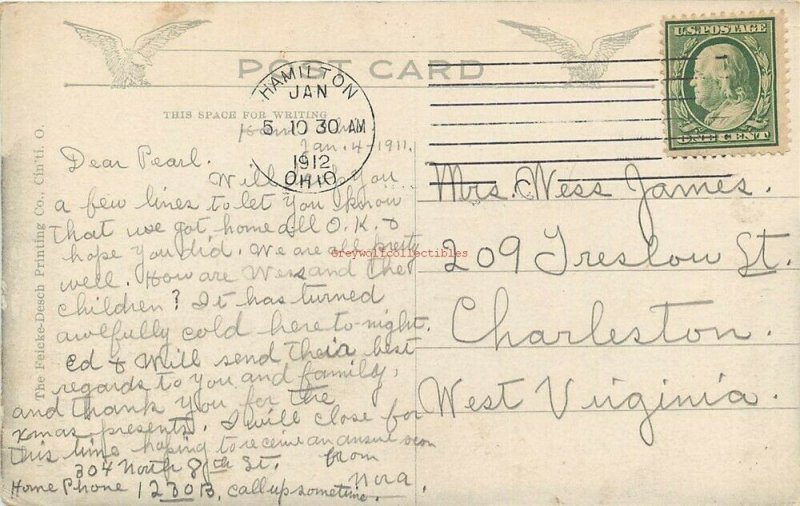 POST CARD
THIS SPACE FOR WRITING
HAMILTON
JAN
5 10 30 AM
1912
OHIO
U.S. POSTAGE
ONE CENT
Jan. 4 - 1911.
Dear Pearl.
Will you
a few lines to let you know
that we got home all O.K. &
hope you did. We are all pretty
well. How are Wess and the
children? It has turned
awefully cold here to-night.
Ed & Will send their best
regards to you and family,
and thank you for the
xmas presents. I will close for
this time hoping to receive an answer soon
304 North 8th St. from
Home Phone 1230B, call up sometime. Nora.
Mrs. Wess James.
209 Treslow St.
Charleston.
West Virginia.
The Feicke-Desch Printing Co., Cin'ti, O.
Greywolfcollectibles